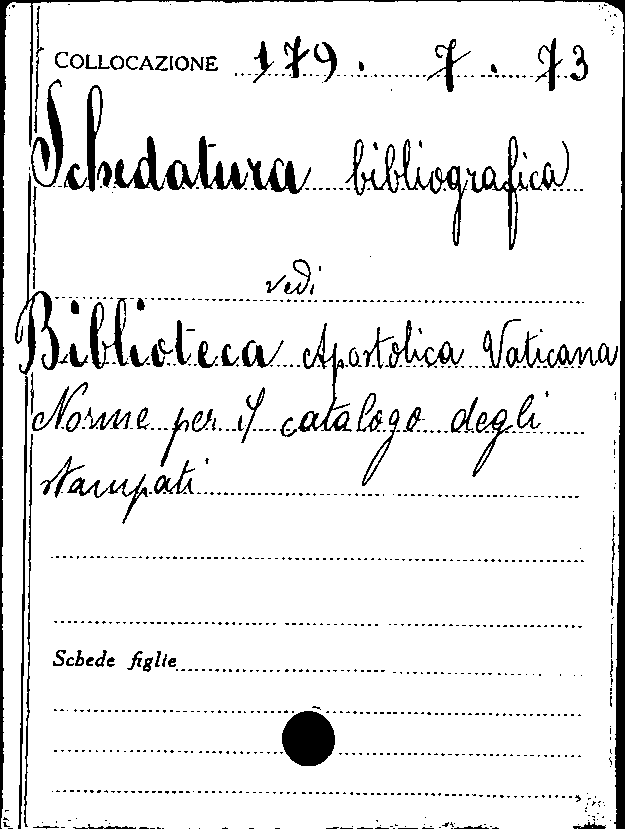 COLLOCAZIONE 179. 7. 73
Schedatura bibliografica
vedi
Biblioteca Apostolica Vaticana
Norme per il catalogo degli
stampati
Schede figlie